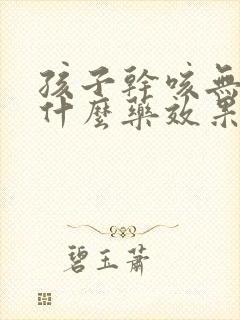 孩子幹咳無
什麼藥效果
碧玉蕭